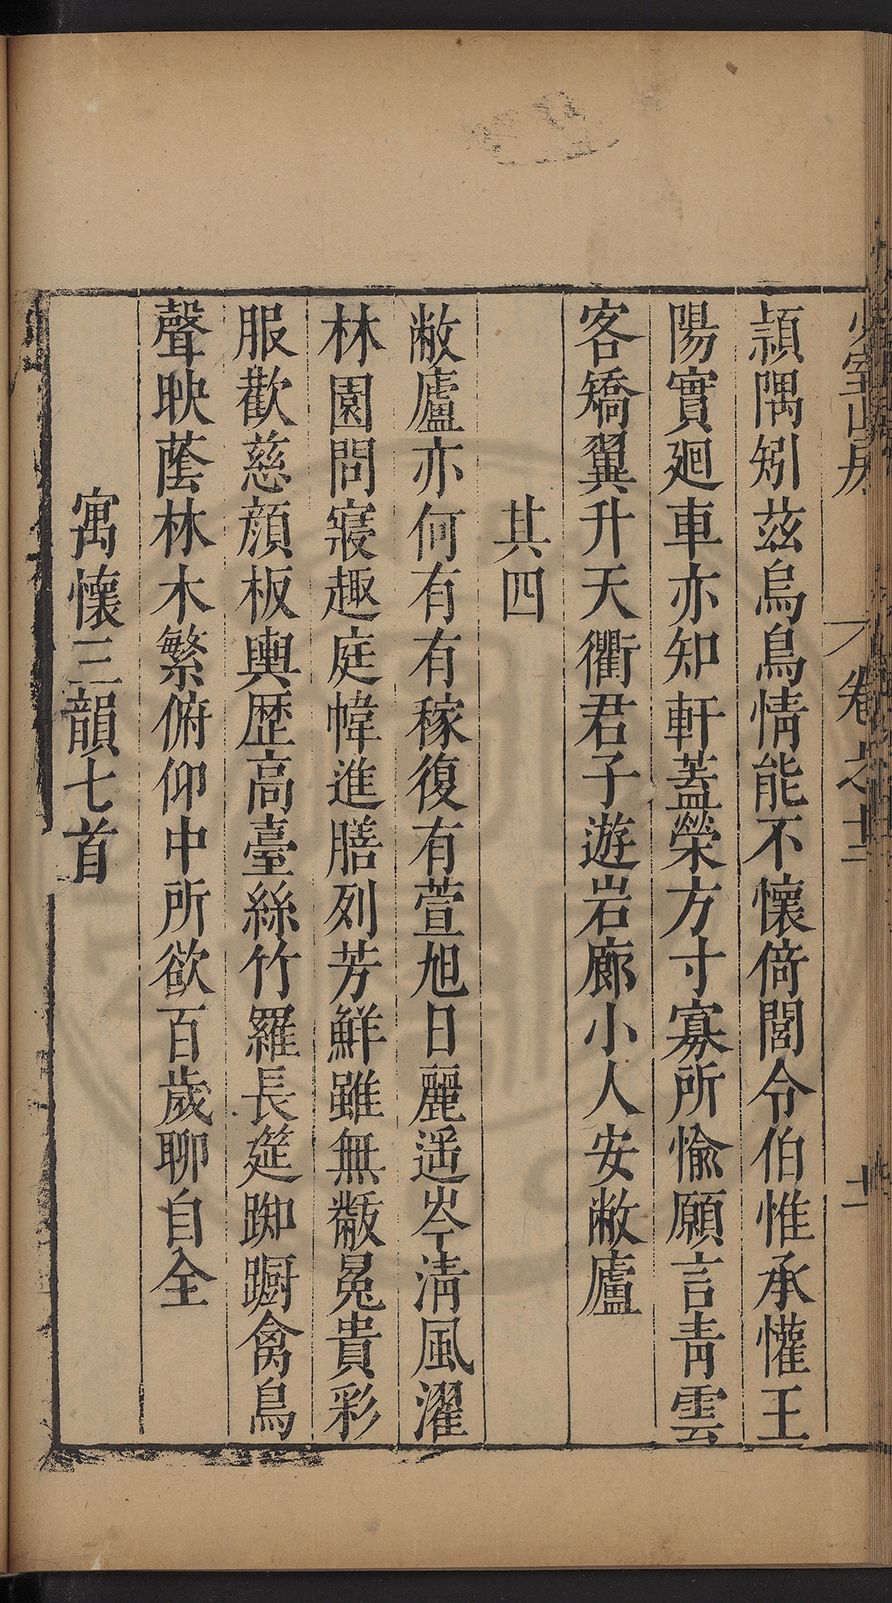 少室山房 卷之
頴隅矧茲烏鳥情能不懷倚閭令伯惟承懽王
陽實廻車亦知軒蓋榮方寸寡所愉願言青雲
客矯翼升天衢君子遊岩廊小人安敝廬
其四
敝廬亦何有有稼復有萱旭日麗遥岑清風濯
林園問寢趣庭幃進膳列芳鮮雖無黻冕貴彩
服歡慈顔板輿歴高臺絲竹羅長筵踟蹰禽鳥
聲映蔭林木繁俯仰中所欲百歲聊自全
寓懷三韻七首